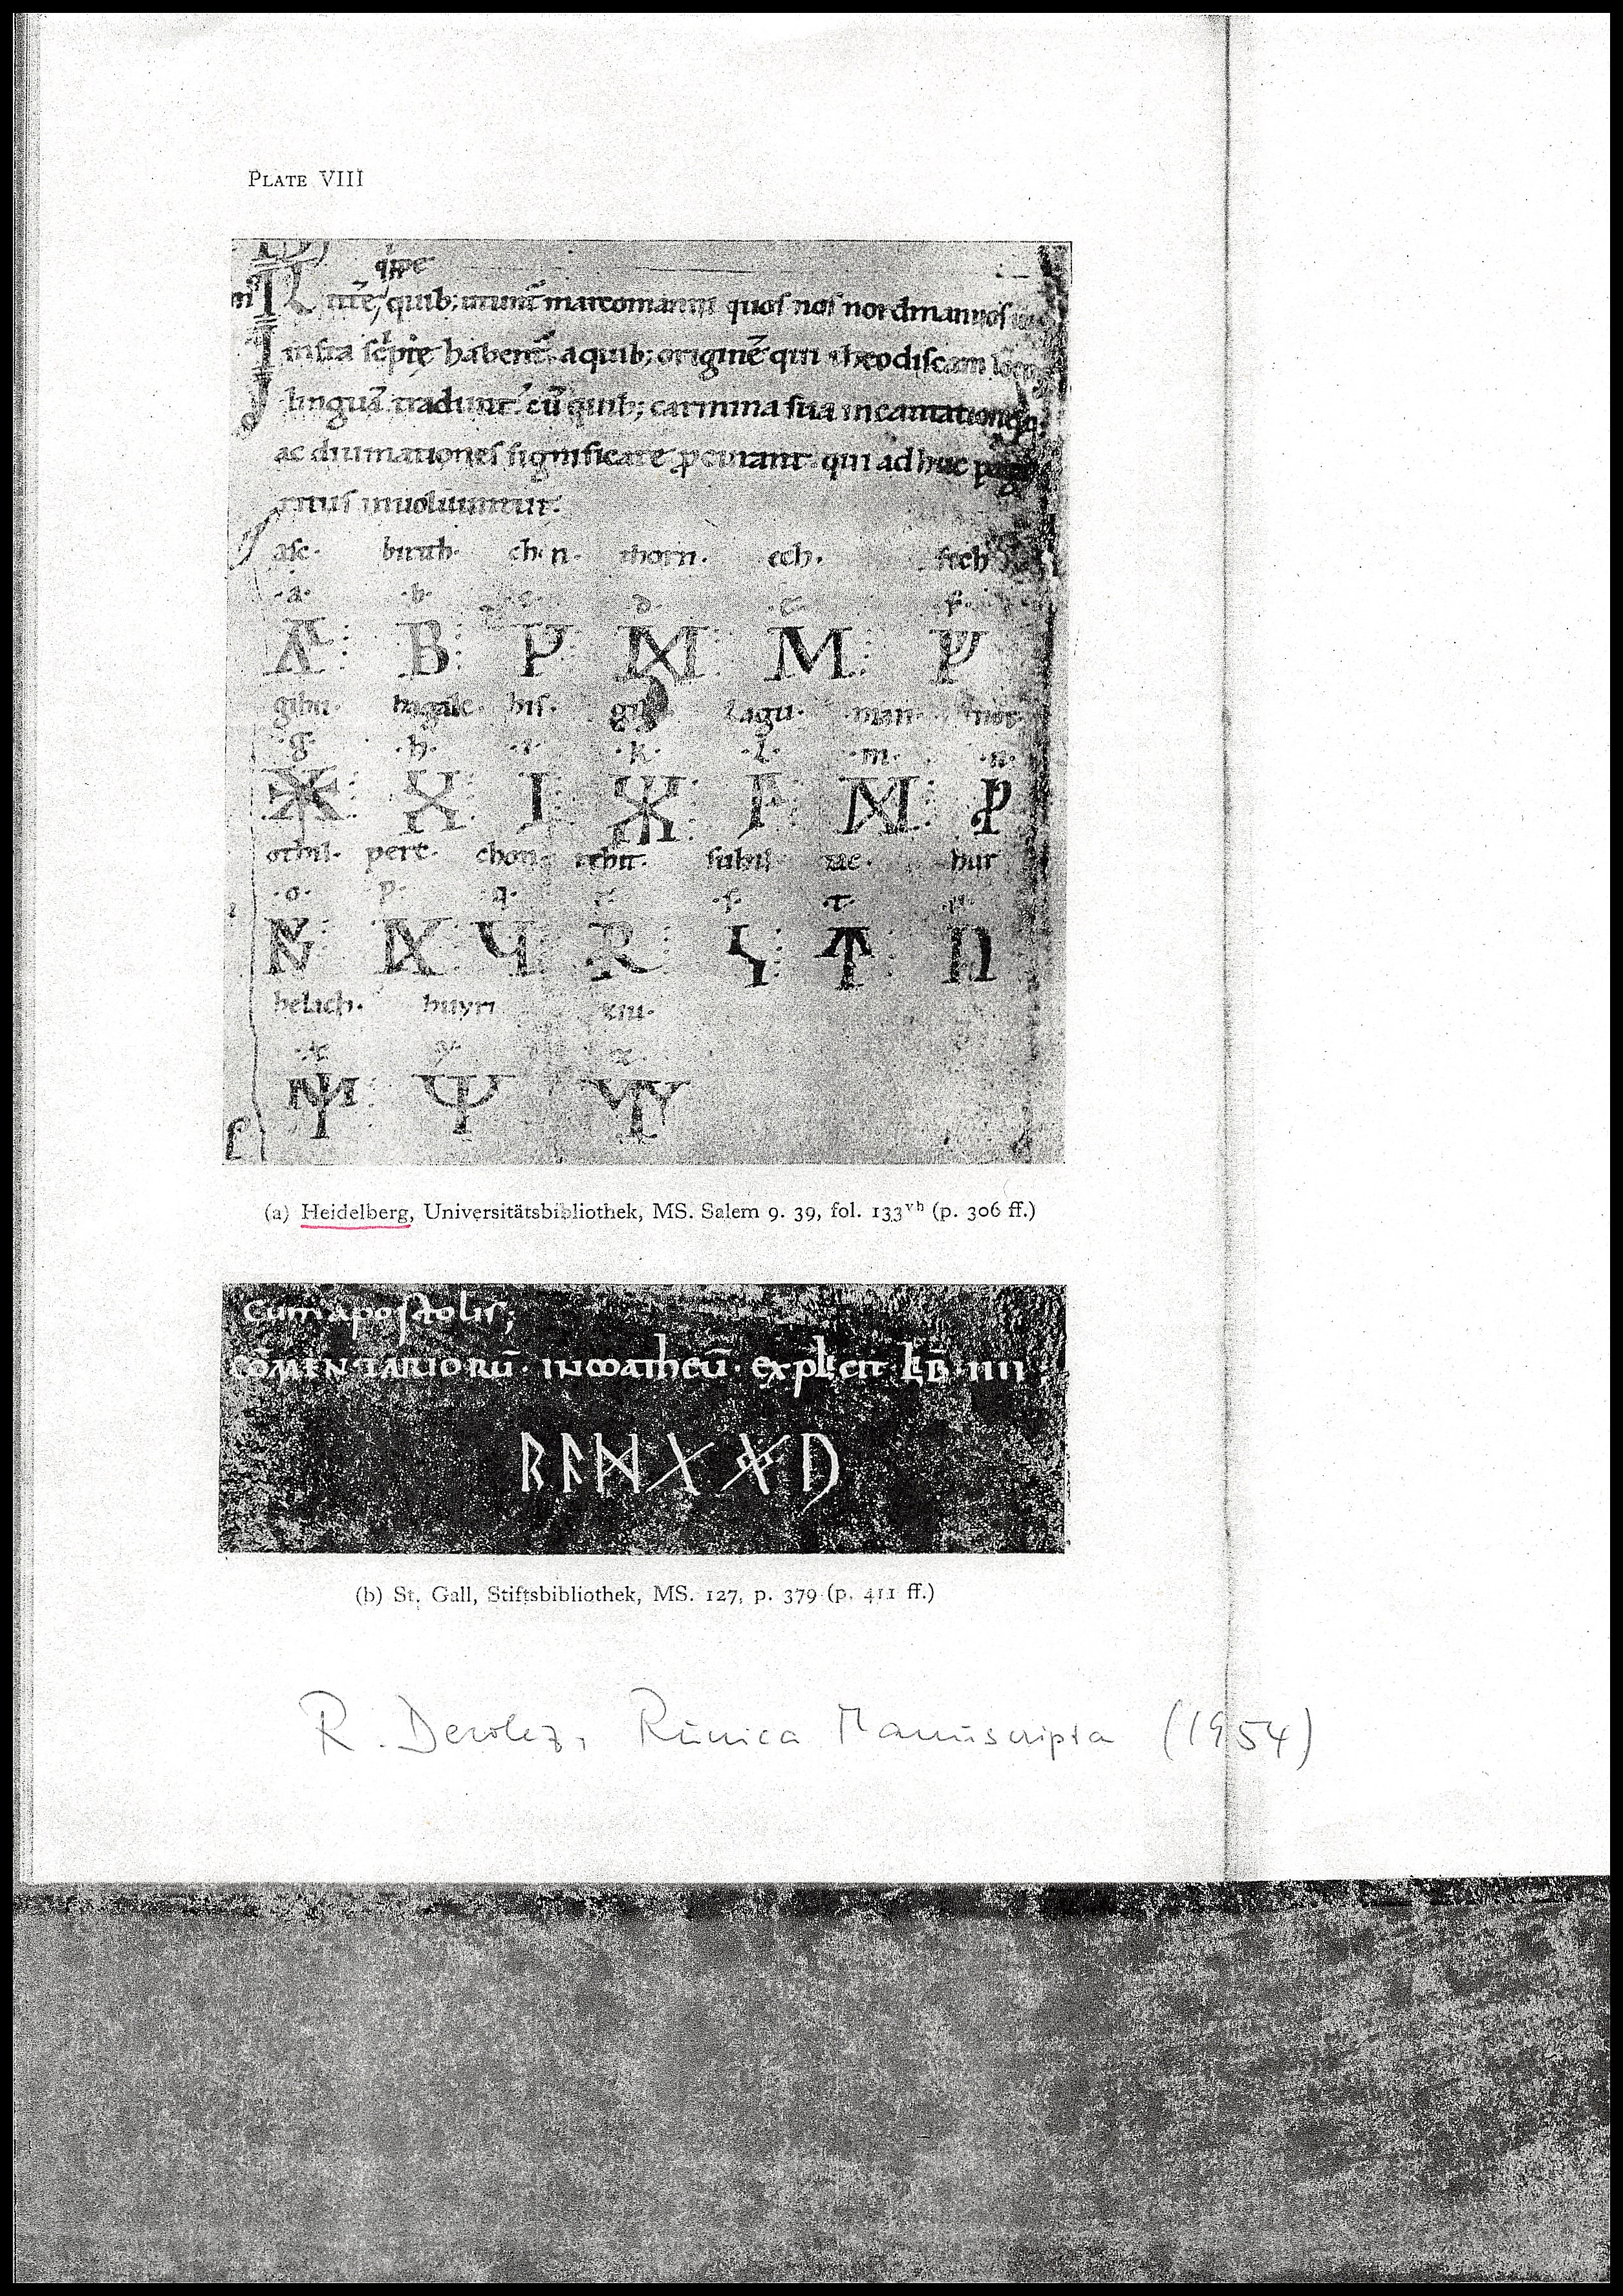 PLATE VIII
qppe
quib; utunt̄ marcomanni quos nos nordmannos
infra sc̄ptę habent̄ a quib; originē qui theodiscam
linguā tradunt. cū quib; carmina sua incantationesq;
ac diuinationes significare ꝓcurant qui adhuc
ritus inuoluuntur.
asc. birith. thorn. ech. fech
·a· ·b· ·c· d ·e· f·
ᚪ B ᛗ M
gibu. hagale. his. lagu. man. not.
·g· ·h· ·i· ·k· ·l· ·m· ·n·
I ᛗ
othil. perc. chon. rehit. suhil tac. hur
·o· p· ·q· r ·s· ·t· ·u·
R ᛏ
helach. huyri ziu.
·x· y· z
(a) Heidelberg, Universitätsbibliothek, MS. Salem 9. 39, fol. 133ᵛᵇ (p. 306 ff.)
cum apostolis;
CŌMENTARIORŪ· IN MATHEŪ· explicit LIB̄·IIII;
ᚱᚨᛞᚷᛟᚦ
(b) St. Gall, Stiftsbibliothek, MS. 127, p. 379 (p. 411 ff.)
R. Derolez, Runica Manuscripta (1954)